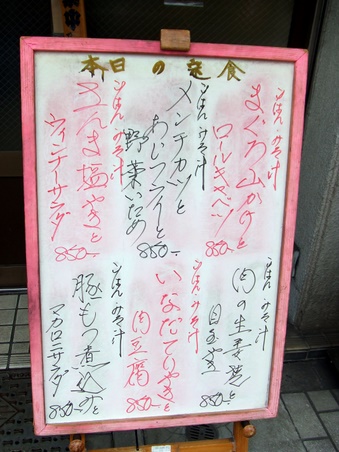 本日の定食
まぐろ山かけと
ロールキャベツ
ごはん・みそ汁
850-
メンチカツと
あじフライと
野菜いため
ごはん・みそ汁
850-
さんま塩やきと
ウインナーサラダ
ごはん・みそ汁
850-
肉の生姜焼と
目玉やき
ごはん・みそ汁
850-
いなだてりやきと
肉豆腐
ごはん・みそ汁
850-
豚もつ煮込みと
マカロニサラダ
ごはん・みそ汁
850-